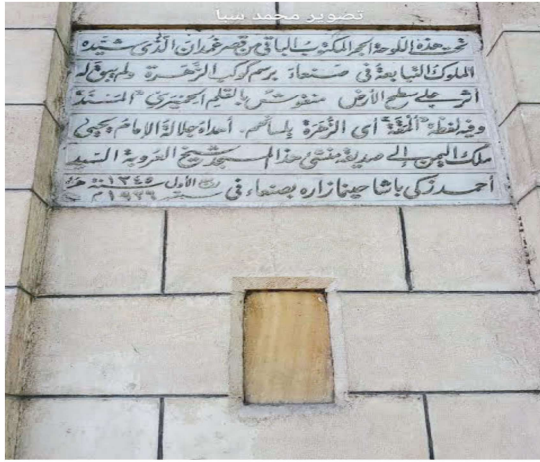 تصوير محمد سبا
تحت هذه اللوحة الحجر المكتوب الباقي من قصر غمدان الذي شيده
الملوك التبابعة في صنعاء برسم كوكب الزهرة ولم يبق له
أثر على سطح الأرض منقوش بالقلم الحميري "المسند"
وفيه لفظة "المقة" أي الزهرة بلسانهم. أهداه جلالة الإمام يحيى
ملك اليمن إلى صديقه منشئ هذا المسجد شيخ العروبة السيد
أحمد زكي باشا حينما زاره بصنعاء في ربيع الأول سنة ١٣٤٥ هـ
سبتمبر ١٩٢٦ م